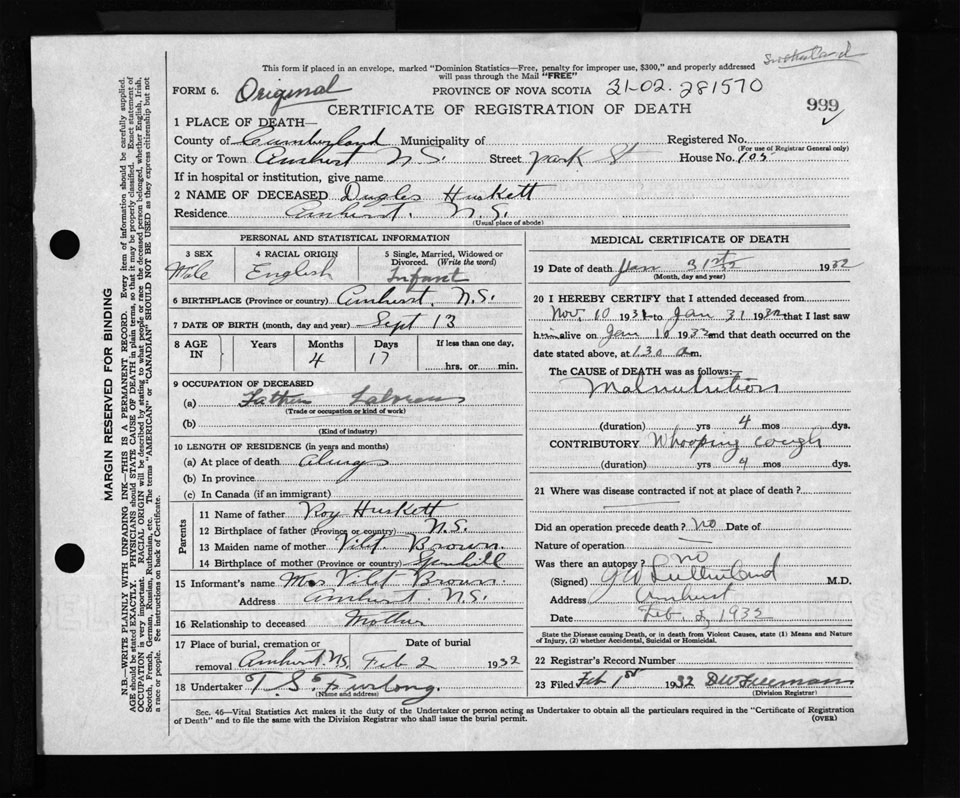 Sutherland
This form if placed in an envelope, marked "Dominion Statistics—Free, penalty for improper use, $300," and properly addressed
will pass through the Mail "FREE"
FORM 6. Original PROVINCE OF NOVA SCOTIA 21-02. 281570
CERTIFICATE OF REGISTRATION OF DEATH 999
1 PLACE OF DEATH—
County of Cumberland Municipality of Registered No.
(For use of Registrar General only)
City or Town Amherst N.S. Street park St House No. 105
If in hospital or institution, give name
2 NAME OF DECEASED Dugles Huskett
Residence Amherst. N.S.
(Usual place of abode)
PERSONAL AND STATISTICAL INFORMATION
3 SEX Male
4 RACIAL ORIGIN English
5 Single, Married, Widowed or Divorced. (Write the word) Infant
6 BIRTHPLACE (Province or country) Amherst, N.S.
7 DATE OF BIRTH (month, day and year) Sept 13
8 AGE IN Years Months 4 Days 17 If less than one day,
hrs. or min.
9 OCCUPATION OF DECEASED
(a) Father
(Trade or occupation or kind of work)
(b)
(Kind of industry)
10 LENGTH OF RESIDENCE (in years and months)
(a) At place of death
(b) In province
(c) In Canada (if an immigrant)
Parents
11 Name of father Roy Huskett
12 Birthplace of father (Province or country) N.S.
13 Maiden name of mother Vilet Brown.
14 Birthplace of mother (Province or country)
15 Informant's name Mrs Vilet Brown.
Address Amherst. N.S.
16 Relationship to deceased Mother
17 Place of burial, cremation or Date of burial
removal Amherst N.S. Feb 2 1932
18 Undertaker T. S. Furlong.
(Name and address)
MEDICAL CERTIFICATE OF DEATH
19 Date of death Jan 31st 1932
(Month, day and year)
20 I HEREBY CERTIFY that I attended deceased from
Nov. 10 1931 to Jan 31 1932 that I last saw
him alive on Jan 10 1932 and that death occurred on
date stated above, at 1.30 a m.
The CAUSE of DEATH was as follows:—
Malnutrition
(duration) yrs 4 mos dys.
CONTRIBUTORY Whooping cough
(duration) yrs 4 mos dys.
21 Where was disease contracted if not at place of death?
Did an operation precede death? no Date of
Nature of operation —
Was there an autopsy? no
(Signed) Sutherland M.D.
Address Amherst
Date Feb. 1932
State the Disease causing Death, or in death from Violent Causes, state (1) Means and Nature
of Injury, (2) whether Accidental, Suicidal or Homicidal.
22 Registrar's Record Number
23 Filed Feb 1st 1932 Freeman
(Division Registrar)
Sec. 46—Vital Statistics Act makes it the duty of the Undertaker or person acting as Undertaker to obtain all the particulars required in the "Certificate of Registration
of Death" and to file the same with the Division Registrar who shall issue the burial permit. (OVER)
MARGIN RESERVED FOR BINDING
N.B.—WRITE PLAINLY WITH UNFADING INK—THIS IS A PERMANENT RECORD. Every item of information should be carefully supplied.
AGE should be stated EXACTLY. PHYSICIANS should STATE CAUSE OF DEATH in plain terms, so that it may be properly classified. Exact statement of
OCCUPATION is very important. RACIAL ORIGIN will be described by stating to what people or race the deceased person belonged, whether English, Irish,
Scotch, French, German, Russian, Ruthenian, etc. The terms "AMERICAN" or "CANADIAN" SHOULD NOT BE USED as they express citizenship but not
a race or people. See instructions on back of Certificate.